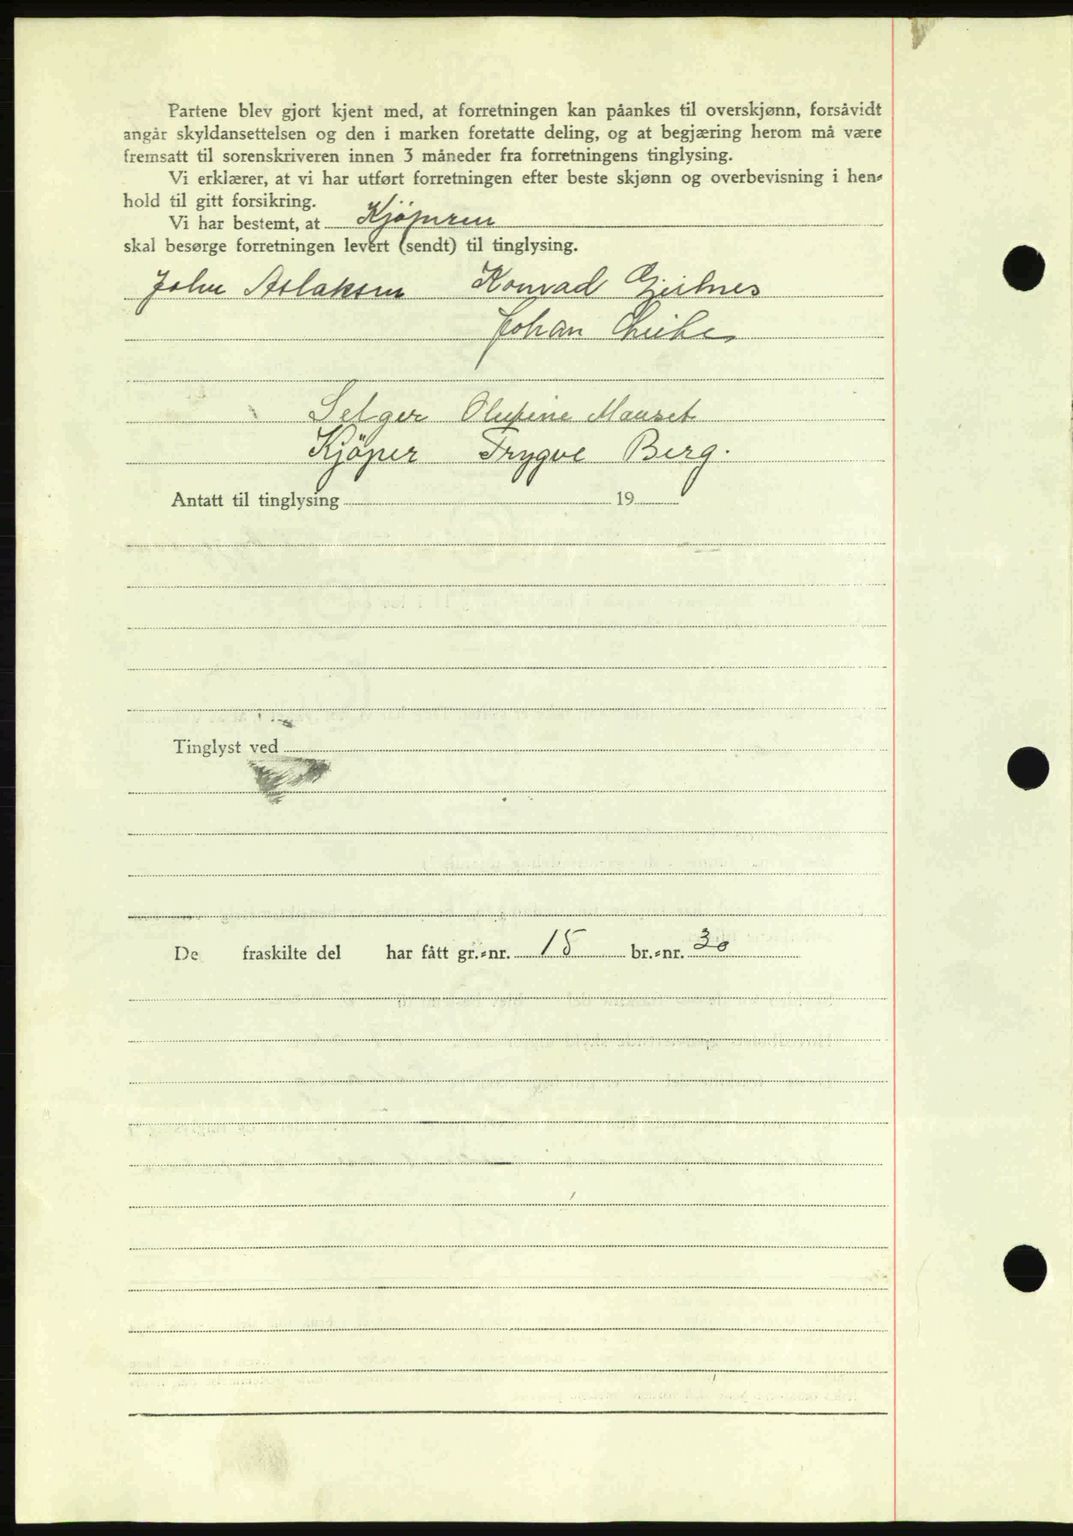 Partene blev gjort kjent med, at forretningen kan påankes til overskjønn, forsåvidt
angår skyldansettelsen og den i marken foretatte deling, og at begjæring herom må være
fremsatt til sorenskriveren innen 3 måneder fra forretningens tinglysing.
Vi erklærer, at vi har utført forretningen efter beste skjønn og overbevisning i hen-
hold til gitt forsikring.
Vi har bestemt, at Kjöperen
skal besørge forretningen levert (sendt) til tinglysing.
John Aslaksen Konrad
Johan
Selger Olufine Mauset
Kjöper Trygve Berg.
Antatt til tinglysing 19
Tinglyst ved
De fraskilte del har fått gr.-nr. 15 br.-nr. 30